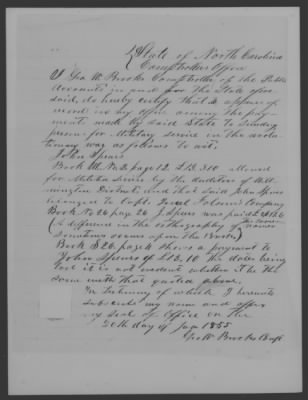 State of North Carolina
Comptrollers Office
I Geo W. Brooks Comptroller of the Public
Accounts in and for the State afore
said, do hereby certify that it appears of
record in my office among the pay-
ments made by said State to Sundry
persons for Military service in the revolu
tionary war as follows to wit:
John Spears
Book No 26 page 12 £13.3.0 allowed
for Militia Service by the Auditors of Wil
mington District, and that said John Spears
belonged to Capt. Company
Book No 26 page 26 J. Spears was paid
(a difference in the orthography of names
sometimes occurs upon the Books)
Book 26 page 4 shows a payment to
John Spears of £13.10 the dates being
lost it is not evident whether it be the
same with that quoted above.
In Testimony of which I hereunto
subscribe my name and affix
my seal of Office on the
20th day of 1855
Geo W Brooks Compt